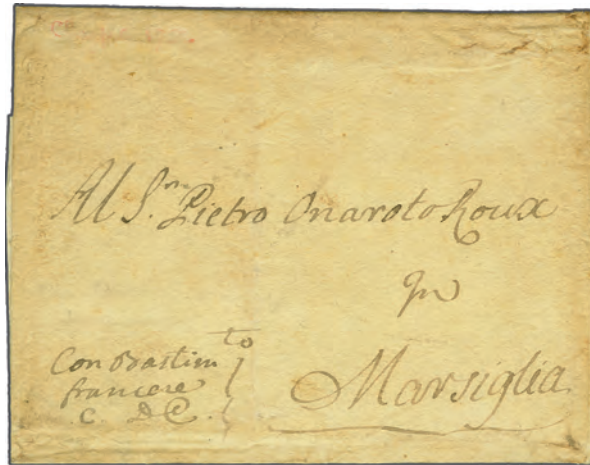 Al S.r Pietro Onorato Roux
In
Marsiglia
Con Bastim.to
francese
C. D. C.